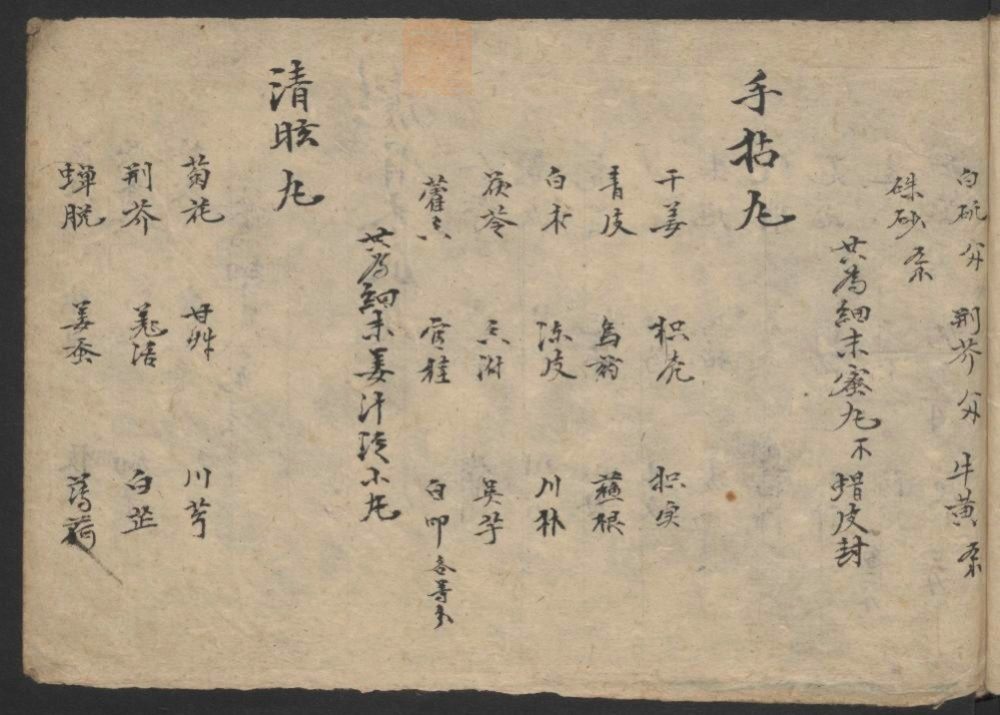 白矾 分 荆芥 分 牛黄
硃砂
共為細末蜜丸 不 蜡皮封
手拈丸
干姜 枳壳 枳实
青皮 烏药 蓬根
白术 陈皮 川朴
茯苓 香附 吴芋
藿香 官桂 白叩 各等分
共為細末姜汁 小丸
清眩丸
菊花 甘艸 川芎
荆芥 羌活 白芷
蝉脱 姜蚕 薄荷